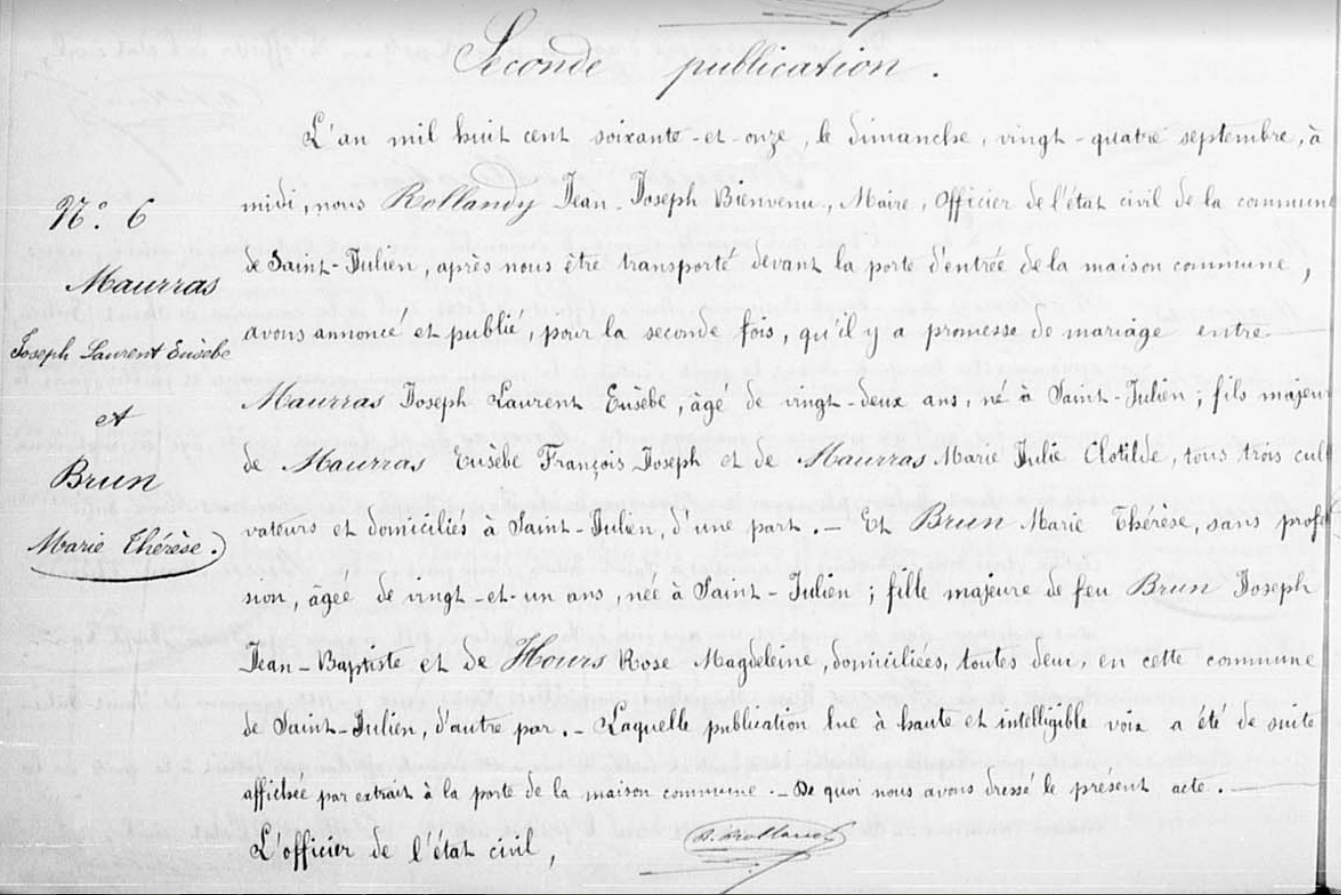 Seconde publication.
L'an mil huit cent soixante-et-onze, le dimanche, vingt-quatre septembre, à
midi, nous Rollandy Jean Joseph Bienvenu, Maire, Officier de l'état civil de la commune
de Saint-Julien, après nous être transporté devant la porte d'entrée de la maison commune,
avons annoncé et publié, pour la seconde fois, qu'il y a promesse de mariage entre
Maurras Joseph Laurent Eusèbe, âgé de vingt-deux ans, né à Saint-Julien; fils majeur
de Maurras Eusèbe François Joseph et de Maurras Marie Julie Clotilde, tous trois culti
vateurs et domiciliés à Saint-Julien, d'une part. — Et Brun Marie Thérèse, sans profes
sion, âgée de vingt-et-un ans, née à Saint-Julien; fille majeure de feu Brun Joseph
Jean-Baptiste et de Hours Rose Magdeleine, domiciliées, toutes deux, en cette commune
de Saint-Julien, d'autre par. — Laquelle publication lue à haute et intelligible voix a été de suite
affichée par extrait à la porte de la maison commune. — De quoi nous avons dressé le présent acte.
L'officier de l'état civil,
N.º 6
Maurras
Joseph Laurent Eusèbe
et
Brun
Marie Thérèse.